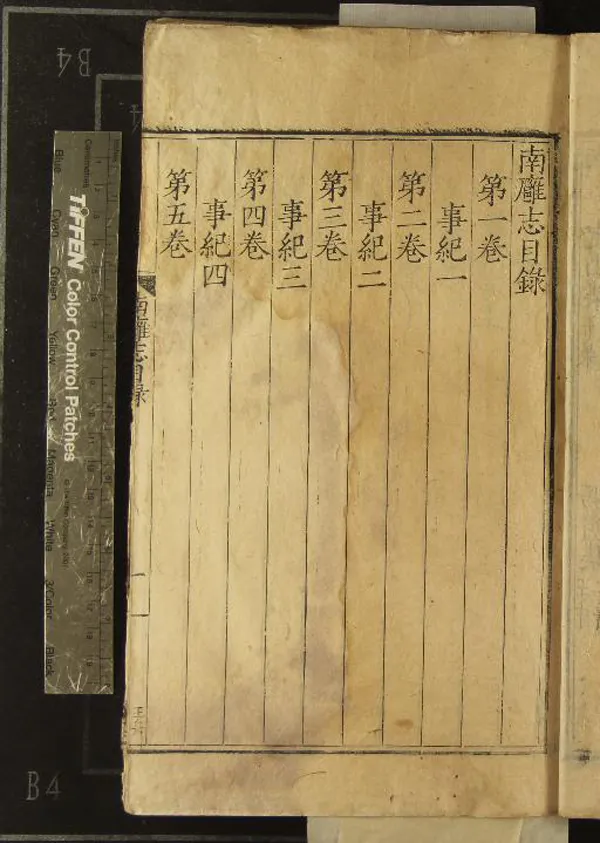 南廱志目錄
第一巻
事紀一
第二巻
事紀二
第三巻
事紀三
第四巻
事紀四
第五巻
南廱志目録
一
B4
B4
TIFFEN Color Control Patches
Blue
Cyan
Green
Yellow
Red
Magenta
White
3/Color
Black